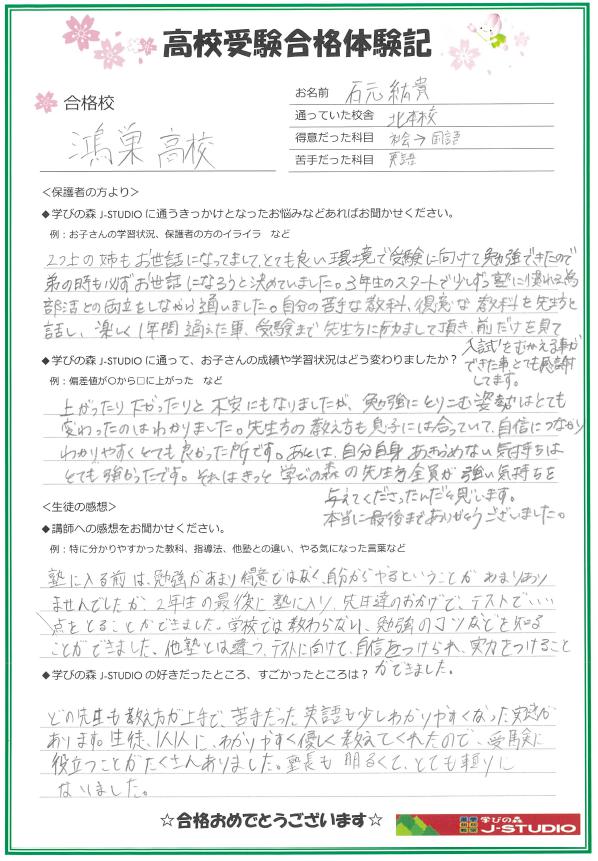 高校受験合格体験記
合格校
鴻巣高校
お名前 石元 紘貴
通っていた校舎 北本校
得意だった科目 社会→国語
苦手だった科目 英語
＜保護者の方より＞
◆学びの森 J-STUDIO に通うきっかけとなったお悩みなどあればお聞かせください。
例：お子さんの学習状況、保護者の方のイライラ など
2つ上の姉もお世話になってまして、とても良い環境で受験に向けて勉強できたので
弟の時も必ずお世話になろうと決めていました。3年生のスタートで少しずつ塾に慣れる為
部活との両立をしながら通いました。自分の苦手な教科、得意な教科を先生と
話し、楽しく1年間通えた事、受験まで先生方に励まして頂き、前だけを見て
入試をむかえる事が
できた事とても感謝
してます。
◆学びの森 J-STUDIO に通って、お子さんの成績や学習状況はどう変わりましたか？
例：偏差値が○から□に上がった など
上がったり下がったりと不安にもなりましたが、勉強にとりこむ姿勢はとても
変わったのはわかりました。先生方の教え方も息子には合っていて、自信につながり
わかりやすくとても良かった所です。あとは、自分自身あきらめない気持ちは
とても強かったです。それはきっと学びの森の先生方全員が強い気持ちを
与えてくださったんだと思います。
本当に最後までありがとうございました。
＜生徒の感想＞
◆講師への感想をお聞かせください。
例：特に分かりやすかった教科、指導法、他塾との違い、やる気になった言葉など
塾に入る前は、勉強があまり得意ではなく、自分からやるということがあまりあり
ませんでしたが、2年生の最後に塾に入り、先生達のおかげで、テストでいい
点をとることができました。学校では教わらない、勉強のコツなどを知る
ことができました。他塾とは違う、テストに向けて、自信をつけられ、実力をつけること
ができました。
◆学びの森 J-STUDIO の好きだったところ、すごかったところは？
どの先生も教え方が上手で、苦手だった英語も少しわかりやすくなった実感が
あります。生徒、1人1人に、わかりやすく優しく教えてくれたので、受験に
役立つことがたくさんありました。塾長も明るくて、とても頼りに
なりました。
☆合格おめでとうございます☆
学びの森
J-STUDIO